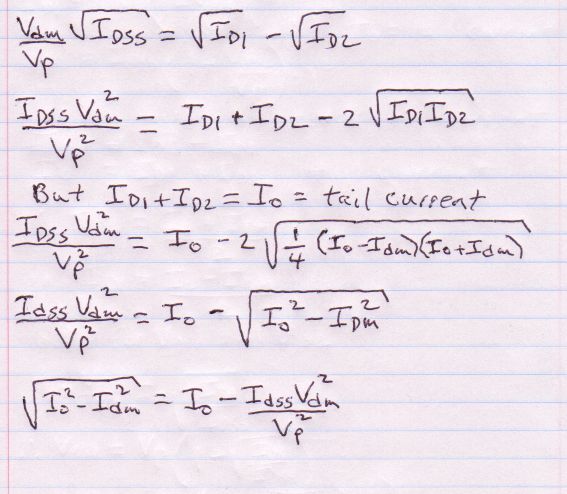 V_dm/V_p √I_DSS = √I_D1 - √I_D2
I_DSS V_dm²/V_p² = I_D1 + I_D2 - 2 √(I_D1 I_D2)
But I_D1 + I_D2 = I_o = tail current
I_DSS V_dm²/V_p² = I_o - 2 √(1/4 (I_o - I_dm)(I_o + I_dm))
I_dss V_dm²/V_p² = I_o - √(I_o² - I_Dm²)
√(I_o² - I_dm²) = I_o - I_dss V_dm²/V_p²